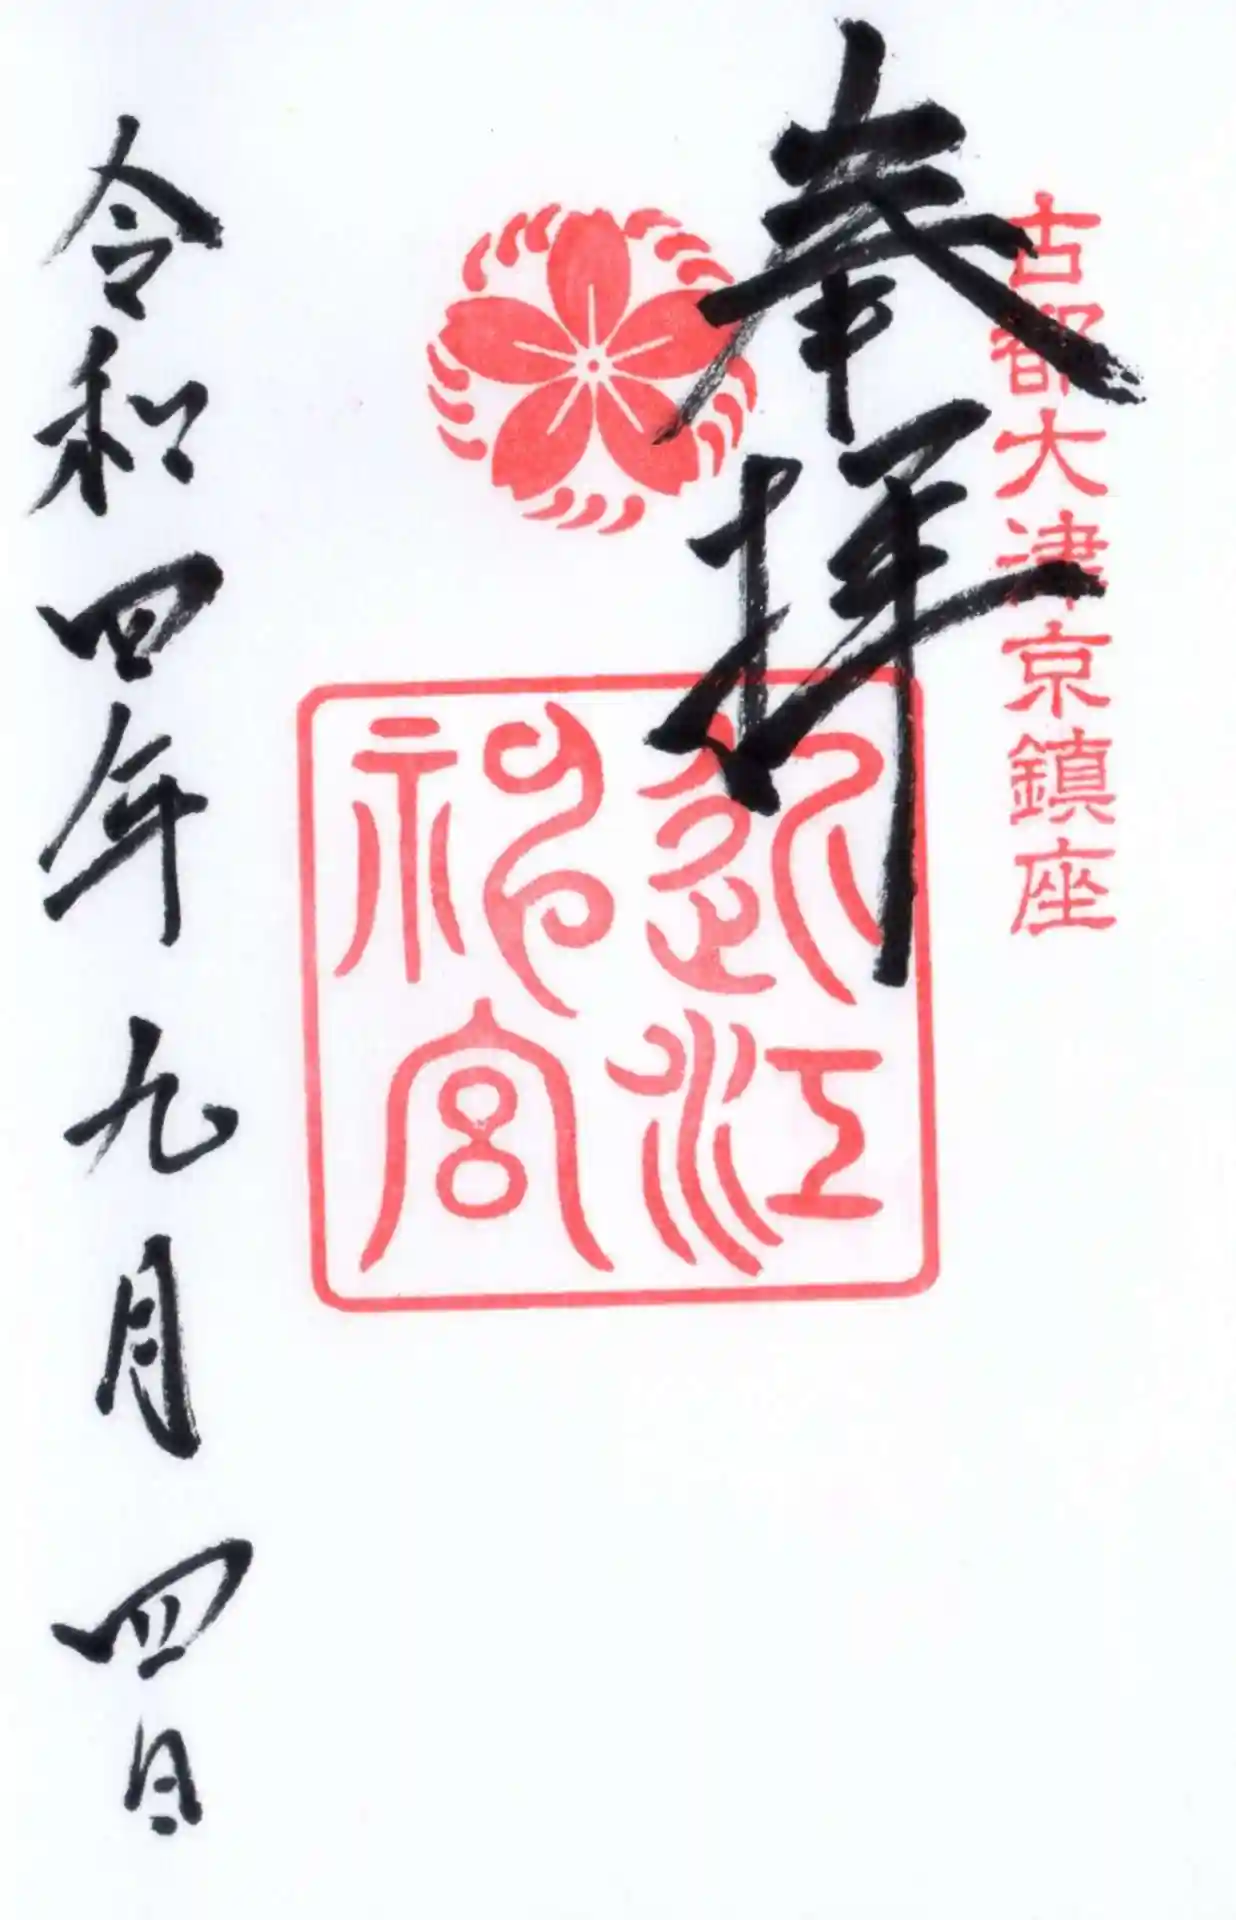 古都大津京鎮座
奉拝
近江
神宮
令和四年九月四日